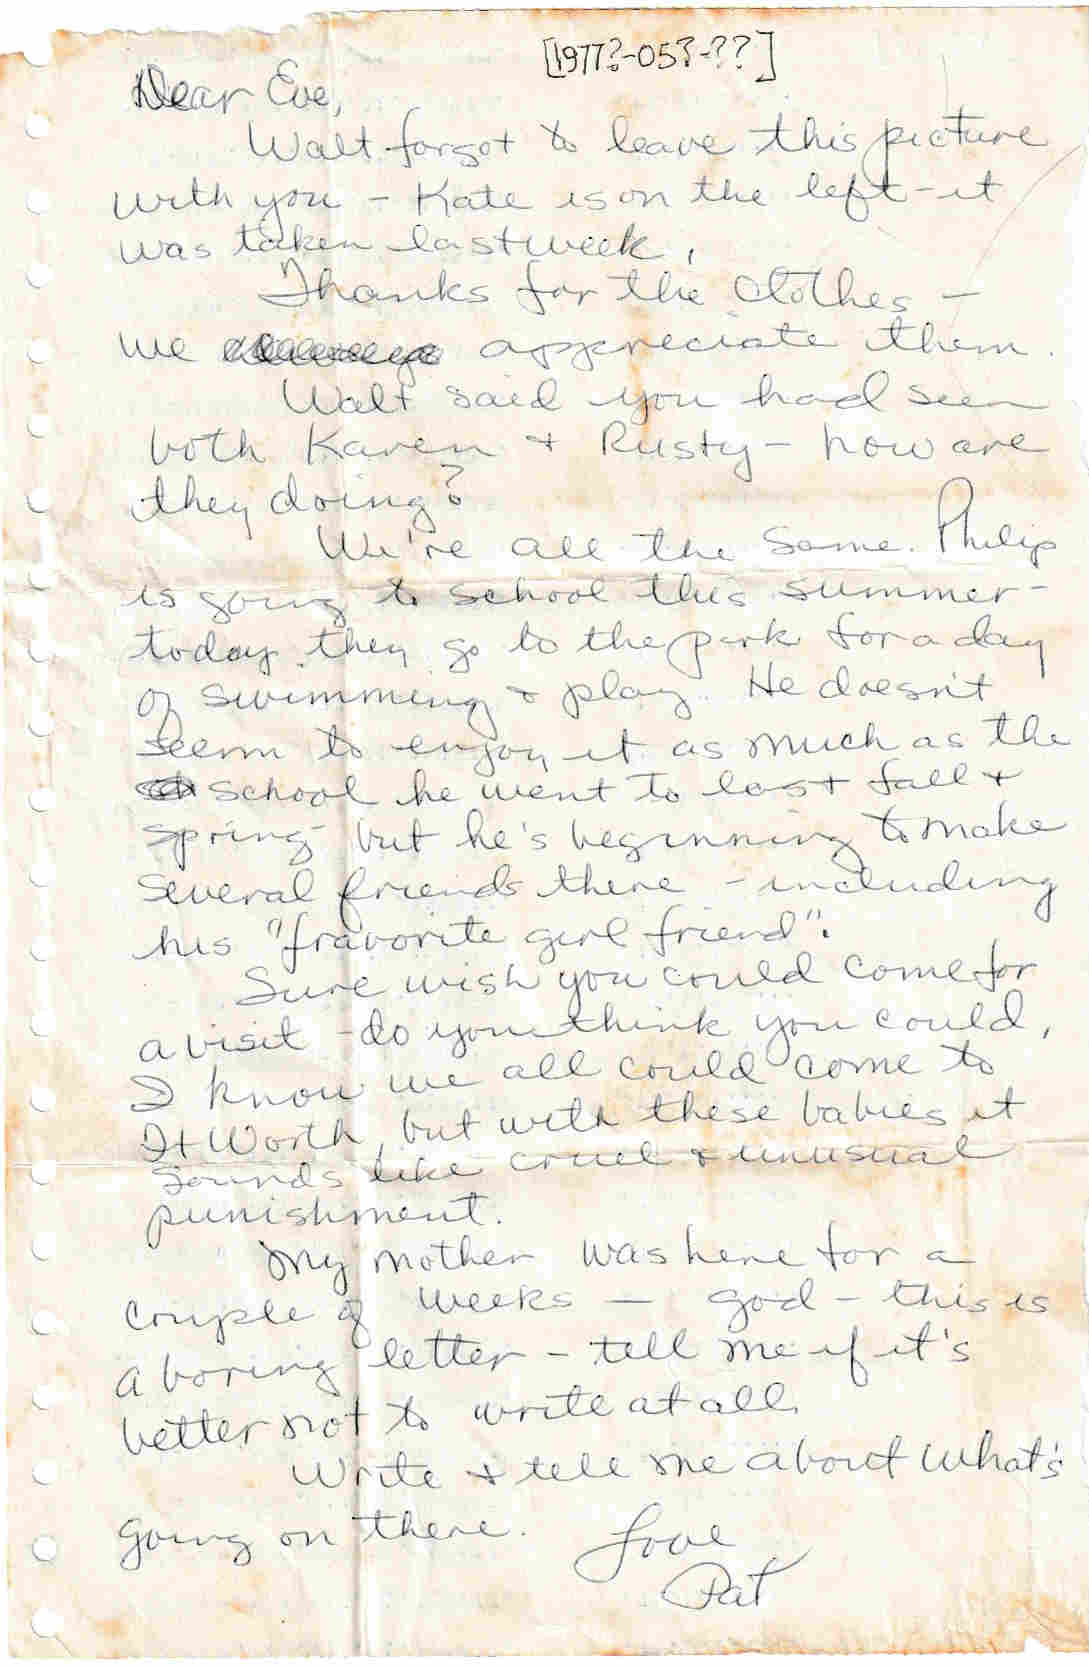 [1977?-05?-??]
Dear Eve,
Walt forgot to leave this picture
with you - Kate is on the left - it
was taken last week.
Thanks for the clothes -
we appreciate them.
Walt said you had seen
both Karen + Rusty - how are
they doing?
We're all the same. Philip
is going to school this summer -
today they go to the park for a day
of swimming + play. He doesn't
seem to enjoy it as much as the
school he went to last fall +
spring - but he's beginning to make
several friends there - including
his "fravorite girl friend".
Sure wish you could come for
a visit - do you think you could,
I know we all could come to
Ft Worth, but with these babies it
sounds like cruel + unusual
punishment.
My mother was here for a
couple of weeks — god - this is
a boring letter - tell me if it's
better not to write at all.
Write + tell me about what's
going on there. Love
Pat